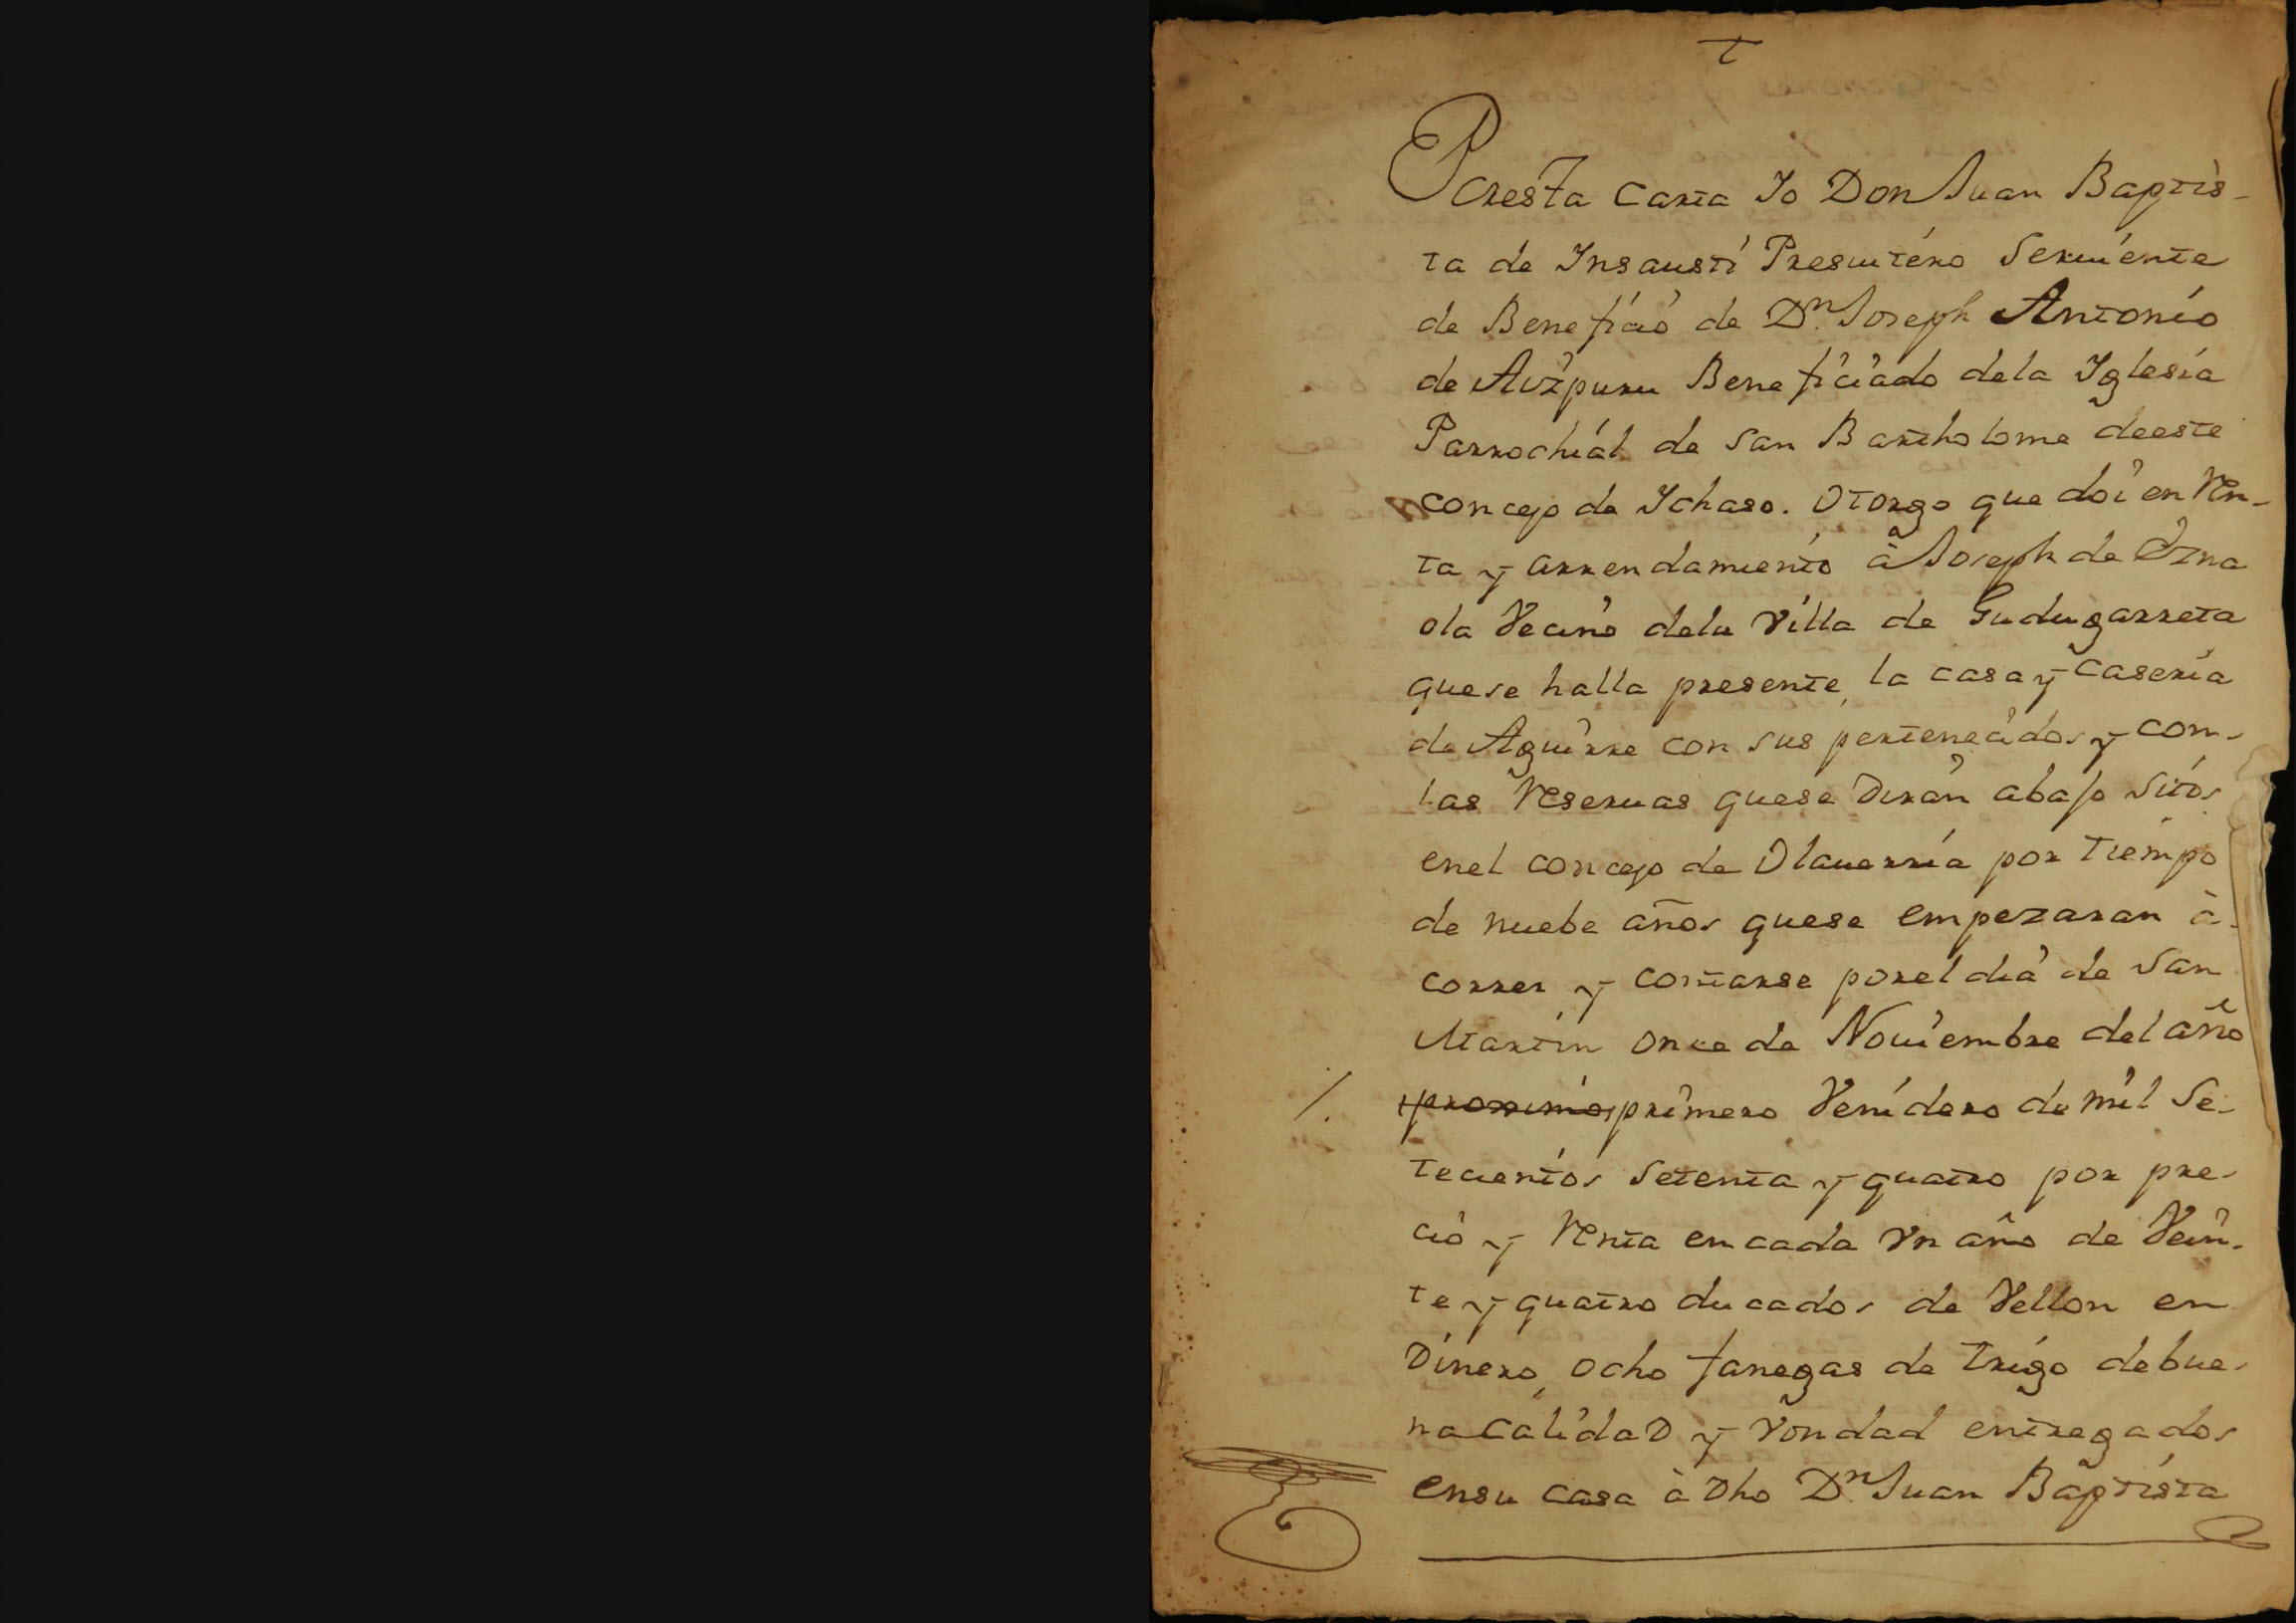 †
Por esta carta Yo Don Juan Baptis-
ta de Insausti Presuitero Seruiente
de Beneficio de Dn. Joseph Antonio
de Aizpuru Beneficiado dela Iglesia
Parrochial de San Bartholome deeste
concejo de Ichaso. Otorgo que doi en Ren-
ta y arrendamiento à Joseph de Izna
ola Vecino dela Villa de Gudugarreta
quese halla presente, la casa y caseria
de Aguirre con sus pertenecidos y con-
las Reseruas quese Diràn abajo sitos
enel concejo de Olauerria por tiempo
de nuebe años quese empezaran à
correr y contarse porel dia de San
Martin once de Nouiembre del año
/. proximo primero Venidero de mil Se-
tecientos Setenta y quatro por pre-
cio y Renta en cada Vn año de Vein-
te y quatro ducados de Vellon en
Dinero, ocho fanegas de trigo debue-
na calidaD y Vondad entregados
ensu casa à Dho Dn. Juan Baptista